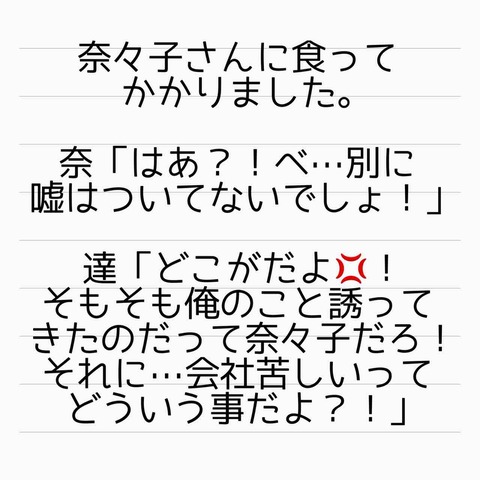 奈々子さんに食って
かかりました。
奈「はあ？！べ…別に
嘘はついてないでしょ！」
達「どこがだよ💢！
そもそも俺のこと誘って
きたのだって奈々子だろ！
それに…会社苦しいって
どういう事だよ？！」